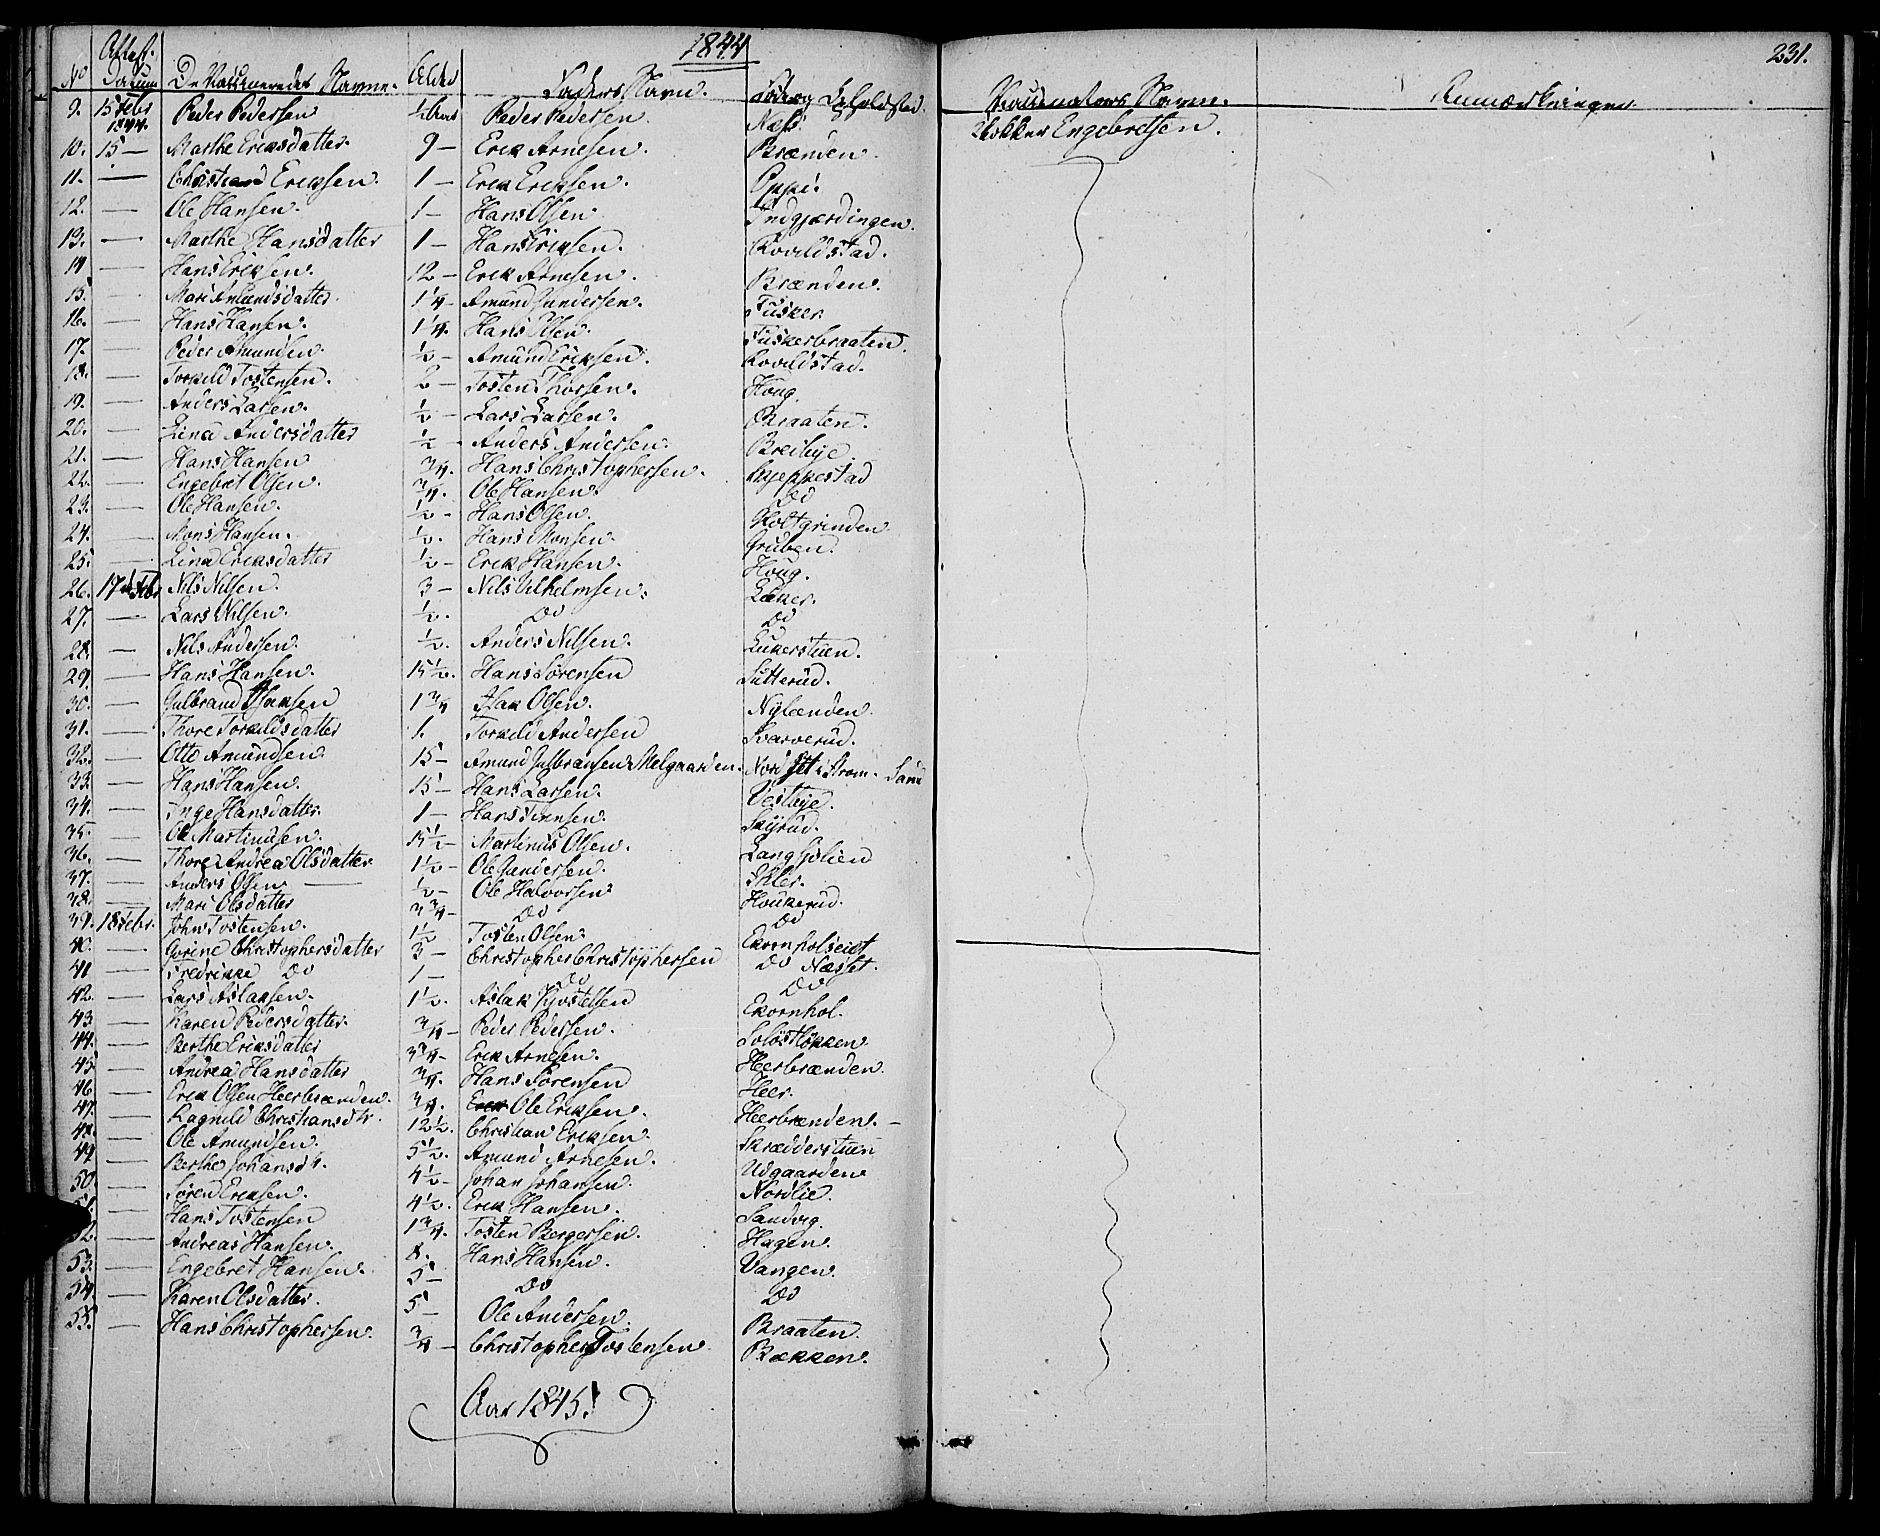 1844
231.
No Attest. Datum De Vaccineredes Navne. Alder Faders Navn. Føde og Opholdssted. Vaccinators Navne. Anmærkninger
9. 15 Febr 1844. Peder Pedersen ½ Aar Peder Pedersen. Næs. Klokker Engebretsen.
10. 15 — Marthe Eriksdatter. 9 — Erik Arnesen. Brænden.
11. — Christian Eriksen. 1 — Erik Eriksen. Oppi.
12. — Ole Hansen. 1 — Hans Olsen. Indgjærdingen.
13. — Marthe Hansdatter 1 — Hans Eriksen. Rovildstad.
14 — Hans Eriksen. 12 — Erik Arnesen. Brænden.
15. — Mari Amundsdatter. 1¼ — Amund Gundersen. Fusker.
16. — Hans Hansen. 1¼. Hans Olsen. Fuskerbraaten.
17. — Peder Amundsen. ½ — Amund Eriksen. Rovildstad.
18. — Torkild Tostensen. 2 — Tosten Thorsen. Houg.
19. — Anders Larsen. ½ — Lars Larsen. Braaten.
20. — Lina Andersdatter ½ — Anders Andersen. Breibye.
21. — Hans Hansen ¾. Hans Christophersen. Gjeppestad
22. — Engebret Olsen. ¾. Ole Hansen. Do
23. — Ole Hansen. ½ — Hans Olsen. Holtgrinden
24. — Mons Hansen. ½. Hans Monsen. Gruben.
25. — Lina Eriksdatter ½ — Erik Hansen. Houg.
26. 17de Febr Nils Nilsen. 3 — Nils Vilhelmsen. Luker.
27. — Lars Nilsen. ½. Do Do
28. — Nils Andersen. ½. Anders Nilsen. Lukerstuen.
29. — Hans Hansen. 15½. Hans Sørensen Sutterud.
30. — Gulbrand Aslaksen 1¾ Aslak Olsen. Nylænden.
31. — Thore Torkildsdatter 1. Torkild Andersen Svarverud.
32. — Otto Amundsen 15 — Amund Gulbransen Melgaarden. Nordset i Strøm. Sand
33. — Hans Hansen. 15 — Hans Larsen. Vestbye.
34. — Inge Hansdatter. 1 — Hans Finnsen. Skyrud.
35. — Ole Martinusen. 15½ — Martinus Olsen. Langsjølien
36. — Thore Andrea Olsdatter 1½ — Ole Gundersen. Ihler.
37. — Anders Olsen — ½ — Ole Halvorsen. Houkerud.
38. — Mari Olsdatter 3¾ — Do Do
39. 18 Febr. John Tostensen. 1½ Tosten Olsen. Ekornholseidt
40. — Gorine Christophersdatter 3 — Christopher Christophersen Do Næsset.
41 — Fredrikke Do 1 — Do Do
42. — Lars Aslaksen. 1½. Aslak Kjostelsen Ekornhol.
43 — Karen Pedersdatter. ¾ — Peder Pedersen. Soløstløkken
44. — Berthe Eriksdatter 3¾ — Erik Arnesen. Heerbrænden.
45 — Andrea Hansdatter ¾. Hans Sørensen Heer.
46. — Erik Olsen Heerbrænden. ¾. Ole Eriksen. Heerbrænden. —
47. — Ragnild Christiansdtr. 12½. Christian Eriksen. Skrædderstuen
48. — Ole Amundsen. 5½. Amund Arnesen. Udgaarden
49 — Berthe Johansdtr. 4½ — Johan Johansen. Nordlie.
50 — Søren Eriksen. 4½. Erik Hansen. Sandvig.
51. — Hans Tostensen 1¾. Tosten Bergersen. Hagen.
52. — Andreas Hansen. 8. Hans Hansen. Vangen.
53. — Engebret Hansen. 5 — Do Do
54. — Karen Olsdatter. 5 — Ole Andersen. Braaten.
55. — Hans Christophersen. ¾ — Christopher Tostensen Bækken.
Aar 1845.